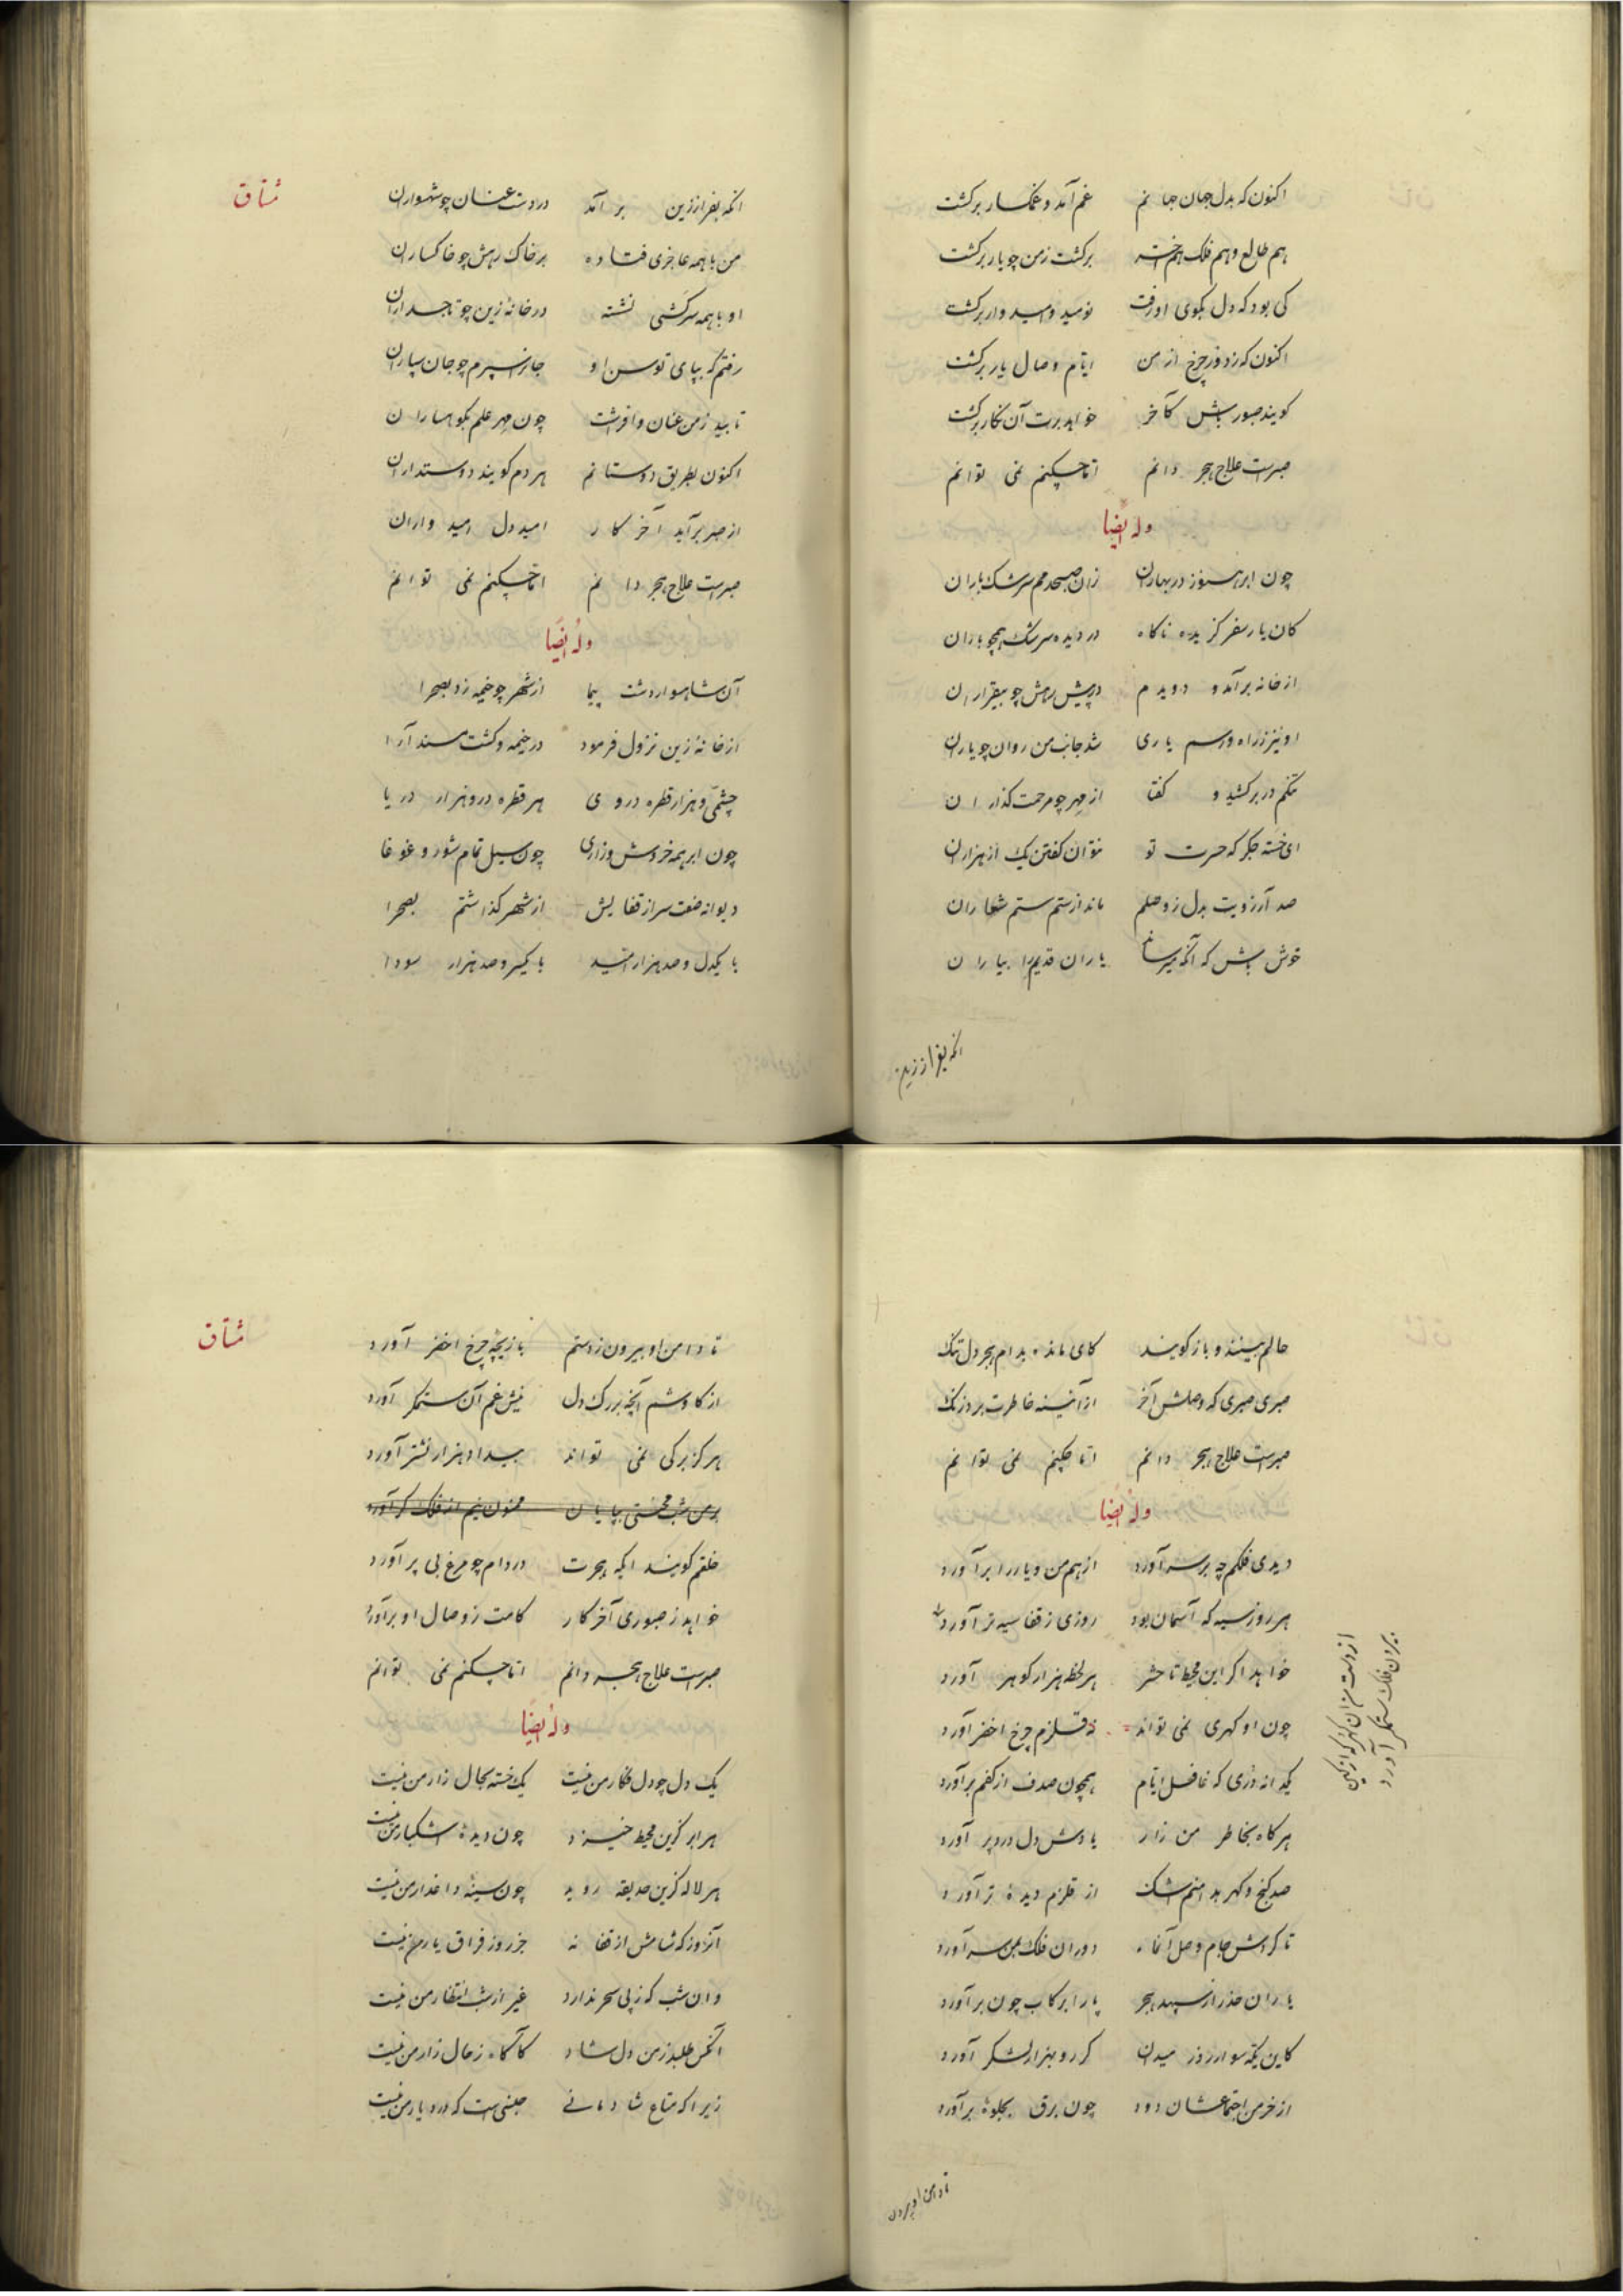 اکنون که بدل جهان جهانم غم آمد و غمگسار برگشت
هم طالع و هم فلک هم اختر برگشت ز من چو یار برگشت
کی بود که دل بکوی او رفت نومید و امیدوار برگشت
اکنون که ز دور چرخ از من ایام وصال یار برگشت
کویند صبور باش کآخر خواهد برت آن نگار برگشت
صبرست علاج هجر دانم اما چکنم نمی توانم
وله ایضا
چون ابر هنوز در بهاران زان صبحدمم سرشک باران
کان یار سفر گزیده ناگاه در دیده سرشک همچو باران
از خانه برآمد و دویدم در پیش رهش چو بیقراران
او نیز ز راه و رسم یاری شد جانب من روان چو یاران
تنگم در بر کشید و گفتا از مهر چو مرحمت گذاران
ای خسته جگر که حسرت تو نتوان گفتن یک از هزاران
صد آرزویت بدل ز وصلم ماند از ستم ستم شعاران
خوش باش که آنکه میرساند یاران قدیم را بیاران
آنگه بفراز زین
مشتاق
آنگه بفراز زین بر آمد در دست عنان چو شهسواران
من با همه عاجزی فتاده بر خاک رهش چو خاکساران
او با همه سرکشی نشسته در خانه زین چو تاجداران
رفتم که بپای توسن او جان بسپرم چو جان سپاران
تابید ز من عنان و افراشت چون مهر علم بکوهساران
اکنون بطریق دوستانم هر دم کویند دوستداران
از صبر برآید آخر کار امید دل امیدواران
صبرست علاج هجر دانم اما چکنم نمی توانم
وله ایضا
آن شاهسوار دشت پیما از شهر چو خیمه زد بصحرا
از خانه زین نزول فرمود در خیمه و گشت مسند آرا
چشمی و هزار قطره در وی هر قطره درو هزار دریا
چون ابر همه خروش و زاری چون سیل تمام شور و غوغا
دیوانه صفت سر از قفایش از شهر گذاشتم بصحرا
با یکدل و صد هزار امید با یکسر و صد هزار سودا
حالم بینند و باز کویند کای مانده بدام هجر دل تنگ
صبری صبری که وصلش آخر از آئینه خاطرت برد زنگ
صبرست علاج هجر دانم اما چکنم نمی توانم
وله ایضا
دیدی فلکم چه بر سر آورد از هم من و یار را برآورد
هر روز سیه که آسمان بود روزی ز قفا سیه تر آورد
خواهد اگر این محیط تا حشر هر لحظه هزار گوهر آورد
چون او گهری نمی تواند نه قلزم چرخ اخضر آورد
یکدانه دری که غافل ایام همچون صدف از کفم برآورد
هرگاه بخاطر من زار یادش دل درد پرور آورد
صد گنج گهر بدامنم اشک از قلزم دیده تر آورد
تا گردش جام وصل آنماه دوران فلک بمن سر آورد
یاران حذر از سپهبد هجر پا را برکاب چون برآورد
کاین یکه سوار روز میدان گر رو بهزار لشکر آورد
از خرمن اجتماعشان دود چون برق بجلوه برآورد
از دست من آن گهر که از کین
بیرون فلک ستمگر آورد
تا دامن او بیرون
مشتاق
تا دامن او بیرون ز دستم بازیچه چرخ اخضر آورد
از کاوشم آنچه بر رگ دل نیش غم آن ستمگر آورد
هرگز برگی نمی تواند بیداد هزار نشتر آورد
خلقم گویند ایکه هجرت در دام چو مرغ بی پر آورد
خواهد ز صبوری آخر کار کامت ز وصال او برآورد
صبرست علاج هجر دانم اما چکنم نمی توانم
وله ایضا
یک دل چو دل فگار من نیست یک خسته بحال زار من نیست
هر ابر کزین محیط خیزد چون دیده اشکبار من نیست
هر لاله کزین حدیقه روید چون سینه داغدار من نیست
آنروز که شامش از قفا نه جز روز فراق یار من نیست
وان شب که ز پی سحر ندارد غیر از شب انتظار من نیست
آنکس طلبد ز من دل شاد کآگاه ز حال زار من نیست
زیرا که متاع شادمانی جنسی است که در دیار من نیست